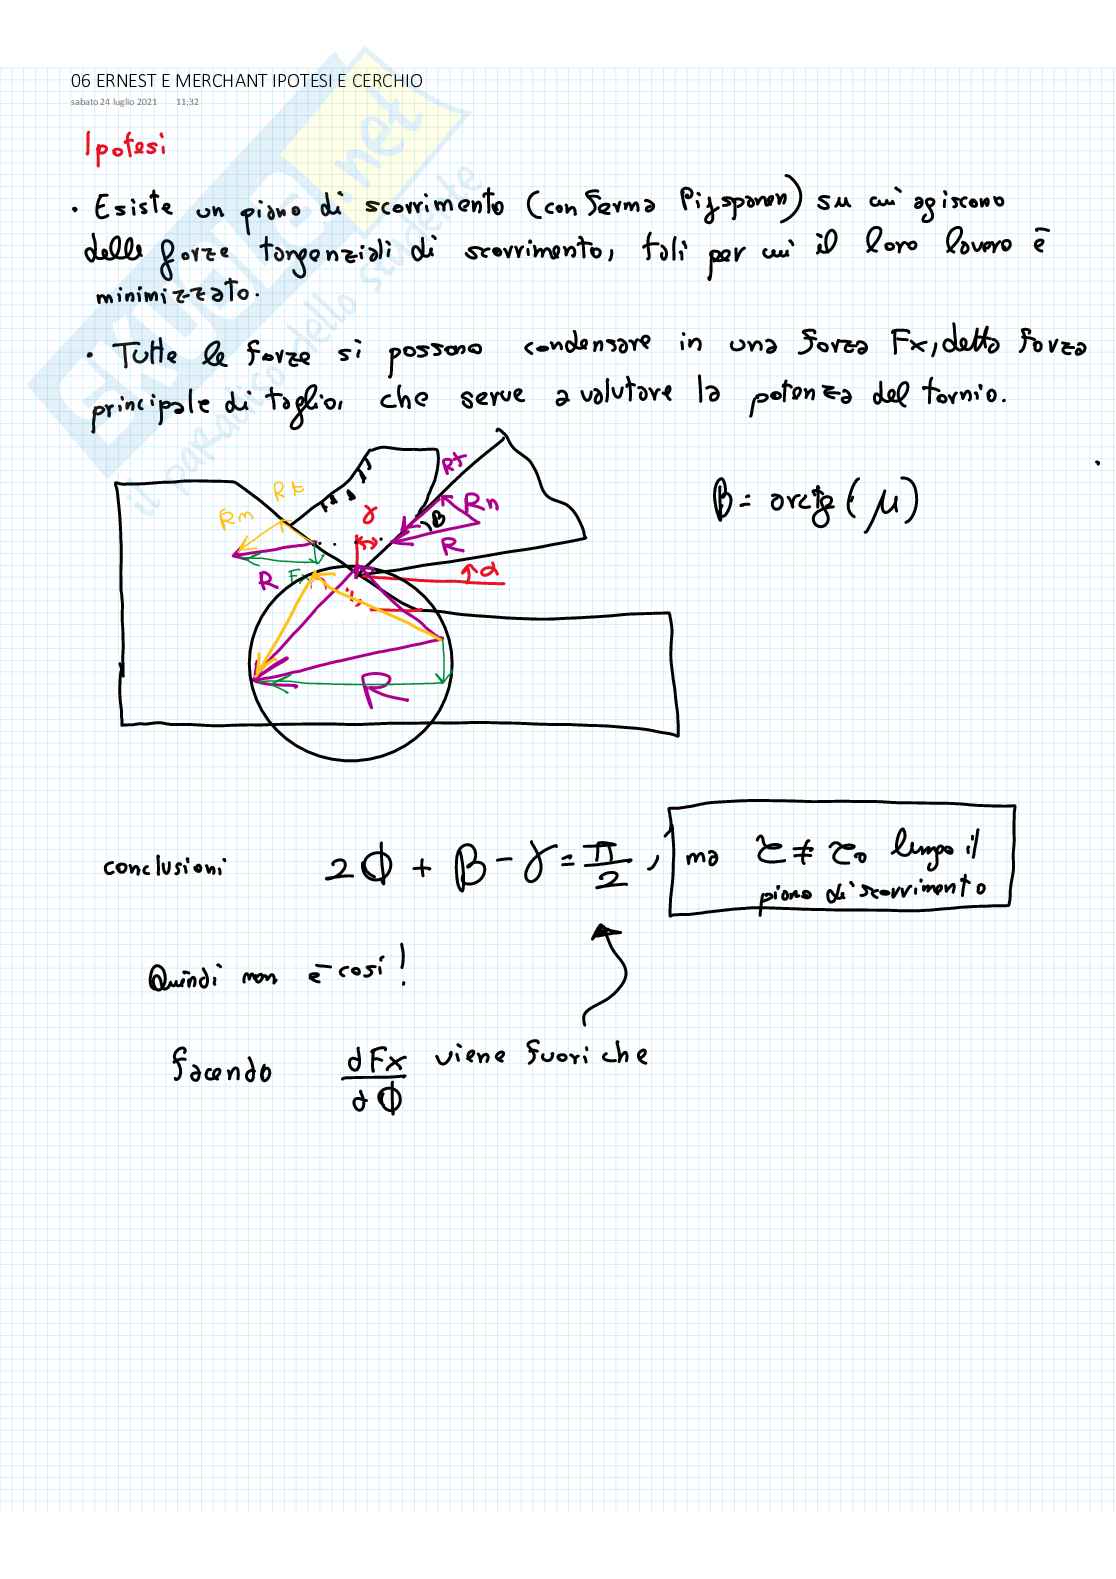 06 ERNEST E MERCHANT IPOTESI E CERCHIO
sabato 24 luglio 2021 11:32
Ipotesi
• Esiste un piano di scorrimento (conferma Piispanen) su cui agiscono
delle forze tangenziali di scorrimento, tali per cui il loro lavoro è
minimizzato.
• Tutte le forze si possono condensare in una forza Fx, detta forza
principale di taglio, che serve a valutare la potenza del tornio.
Rt
Rt
Rn
γ
β
Rn
R
R
α
R
β = arctg (μ)
conclusioni 2Φ + β - γ = π/2, ma τ ≠ τ₀ lungo il
piano di scorrimento
Quindi non è così!
facendo dFx/dΦ viene fuori che
skuola.net
il paradiso dello studente